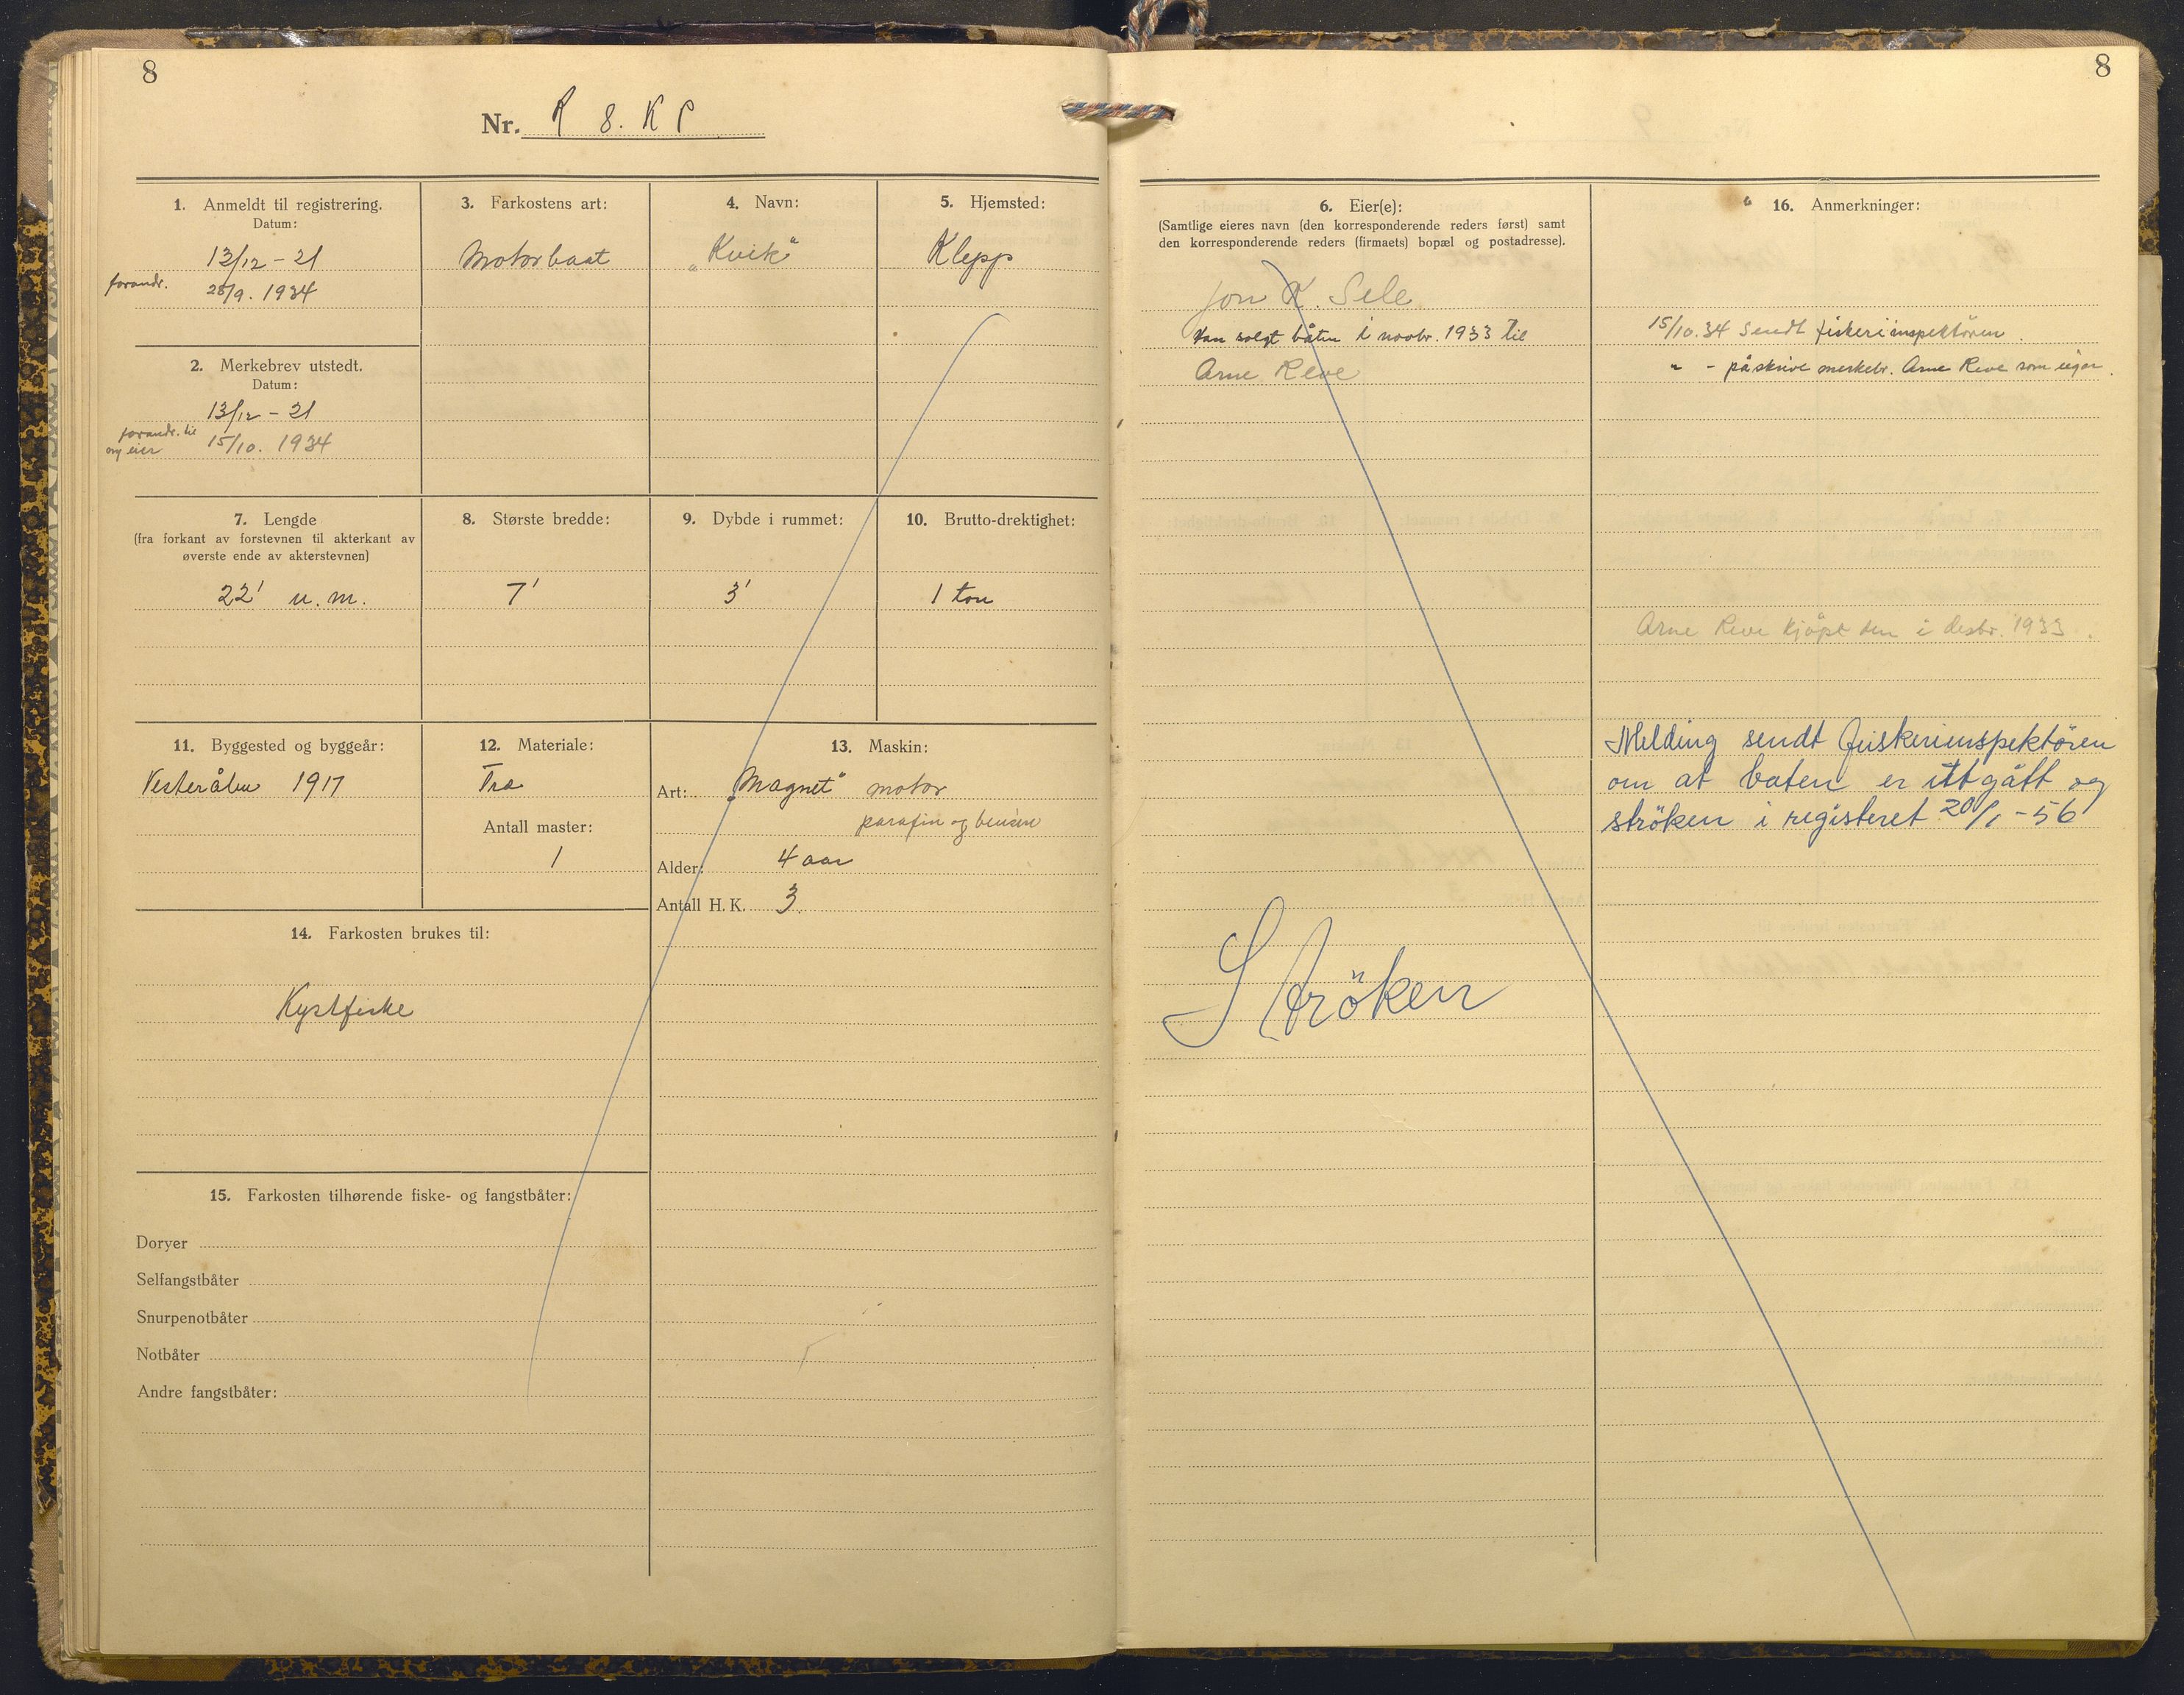 8
Nr. R 8. K P
1. Anmeldt til registrering.
Datum:
13/12 - 21
forandr. 28/9. 1934
2. Merkebrev utstedt.
Datum:
13/12 - 21
forandr. til
ny eier 15/10. 1934
3. Farkostens art:
Motorbaat
4. Navn:
„Kvik"
5. Hjemsted:
Klepp
7. Lengde
(fra forkant av forstevnen til akterkant av
øverste ende av akterstevnen)
22' u. m.
8. Største bredde:
7'
9. Dybde i rummet:
3'
10. Brutto-drektighet:
1 ton
11. Byggested og byggeår:
Vesterålen 1917
12. Materiale:
Træ
Antall master:
1
13. Maskin:
Art: „Magnet" motor
parafin og bensin
Alder: 4 aar
Antall H. K. 3
14. Farkosten brukes til:
Kystfiske
15. Farkosten tilhørende fiske- og fangstbåter:
Doryer
Selfangstbåter
Snurpenotbåter
Notbåter
Andre fangstbåter:
8
6. Eier(e):
(Samtlige eieres navn (den korresponderende reders først) samt
den korresponderende reders (firmaets) bopæl og postadresse).
Jon K. Sele
Han solgt båten i novbr. 1933 til
Arne Reve
Ströken
16. Anmerkninger:
15/10. 34 Sendt fiskeriinspektören.
" - påskrive merkebr. Arne Reve som eigar.
Arne Reve kjöpt den i desbr. 1933.
Melding sendt fuiskeriinspektören
om at båten er utgått og
ströken i registeret 20/1 - 56